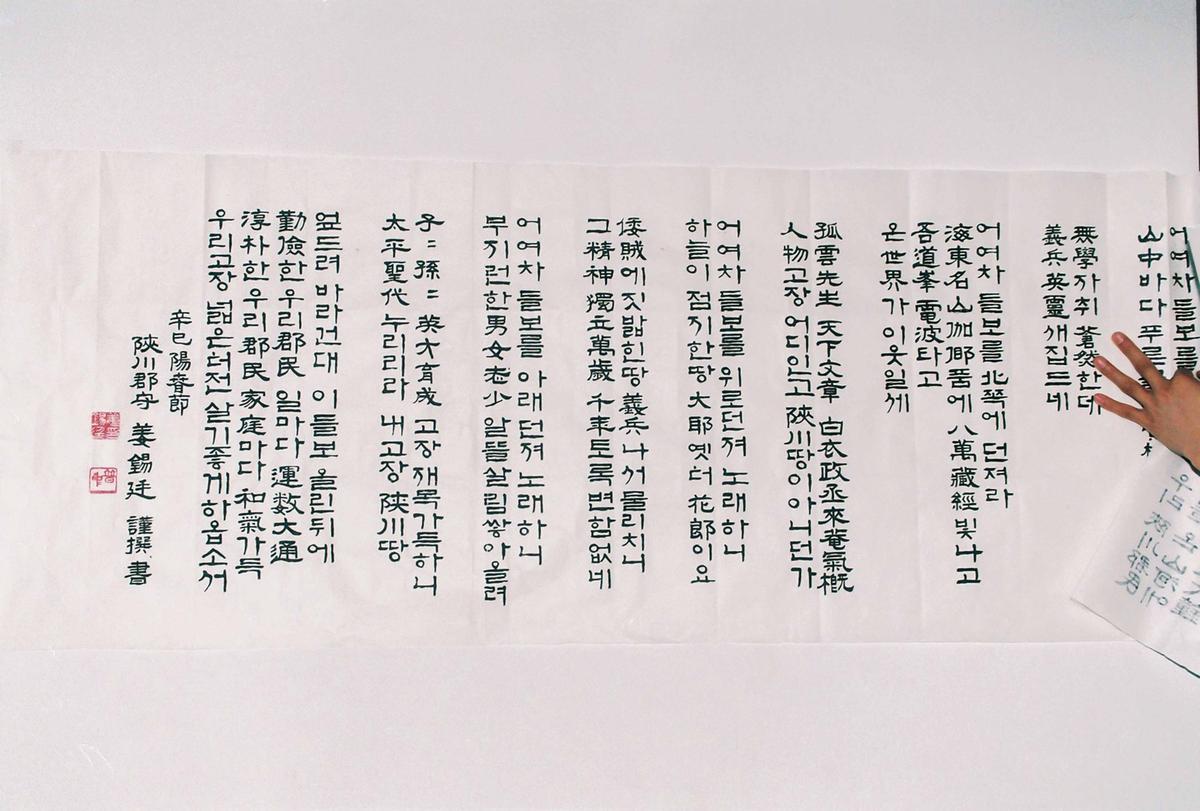 어여차 들보를
山中바다 푸른
無學자취 蒼然한데
義兵英靈깨집드네
어여차 들보를 北쪽에 던져라
海東名山 伽倻품에 八萬藏經 빛나고
吾道峯 電波타고
온世界가 이웃일세
孤雲先生 天下文章 白衣政丞 來菴氣槪
人物고장 어디인고 陜川땅이 아니던가
어여차 들보를 위로던져 노래하니
하늘이 점지한땅 大耶옛터 花郞이요
倭賊에 짓밟힌땅 義兵나서 물리치니
그精神 獨立萬歲 千年토록 변함없네
어여차 들보를 아래던져 노래하니
부지런한 男女老少 알뜰살림 쌓아올려
子〻孫〻 英才育成 고장재목 가득하니
太平聖代 누리리라 내고장 陜川땅
엎드려 바라건대 이들보 올린뒤에
勤儉한 우리郡民 일마다 運数大通
淳朴한 우리郡民 家庭마다 和氣가득
우리고장 넓은터전 살기좋게 하옵소서
辛巳陽春節
陜川郡守 姜錫廷 謹撰 書